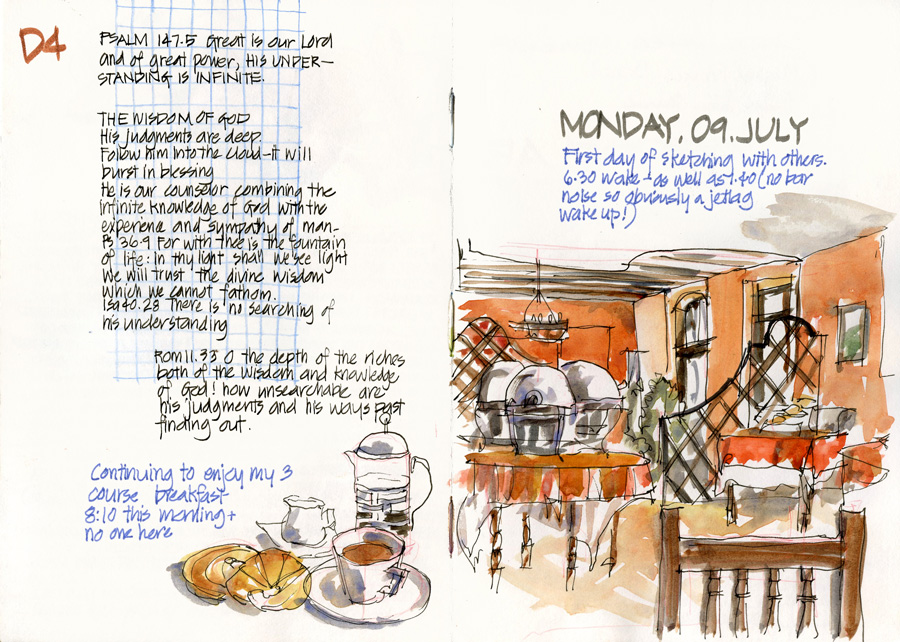 D4
PSALM 147.5 Great is our Lord
and of great power, HIS UNDER-
STANDING IS INFINITE.
THE WISDOM OF GOD
His judgments are deep
Follow him into the cloud-it will
burst in blessing
He is our counselor combining the
infinite knowledge of God with the
experience and sympathy of man-
Ps 36.9 For with thee is the fountain
of life: In thy light shall we see light
We will trust the divine wisdom
which we cannot fathom.
Isa 40.28 There is no searching of
his understanding
Rom 11.33 O the depth of the riches
both of the wisdom and knowledge
of God! how unsearchable are
his judgments and his ways past
finding out.
Continuing to enjoy my 3
course breakfast
8:10 this morning +
no one here
MONDAY. 09. JULY
First day of sketching with others.
6.30 wake - as well as 1.40 (no bar
noise so obviously a jetlag
wake up!)